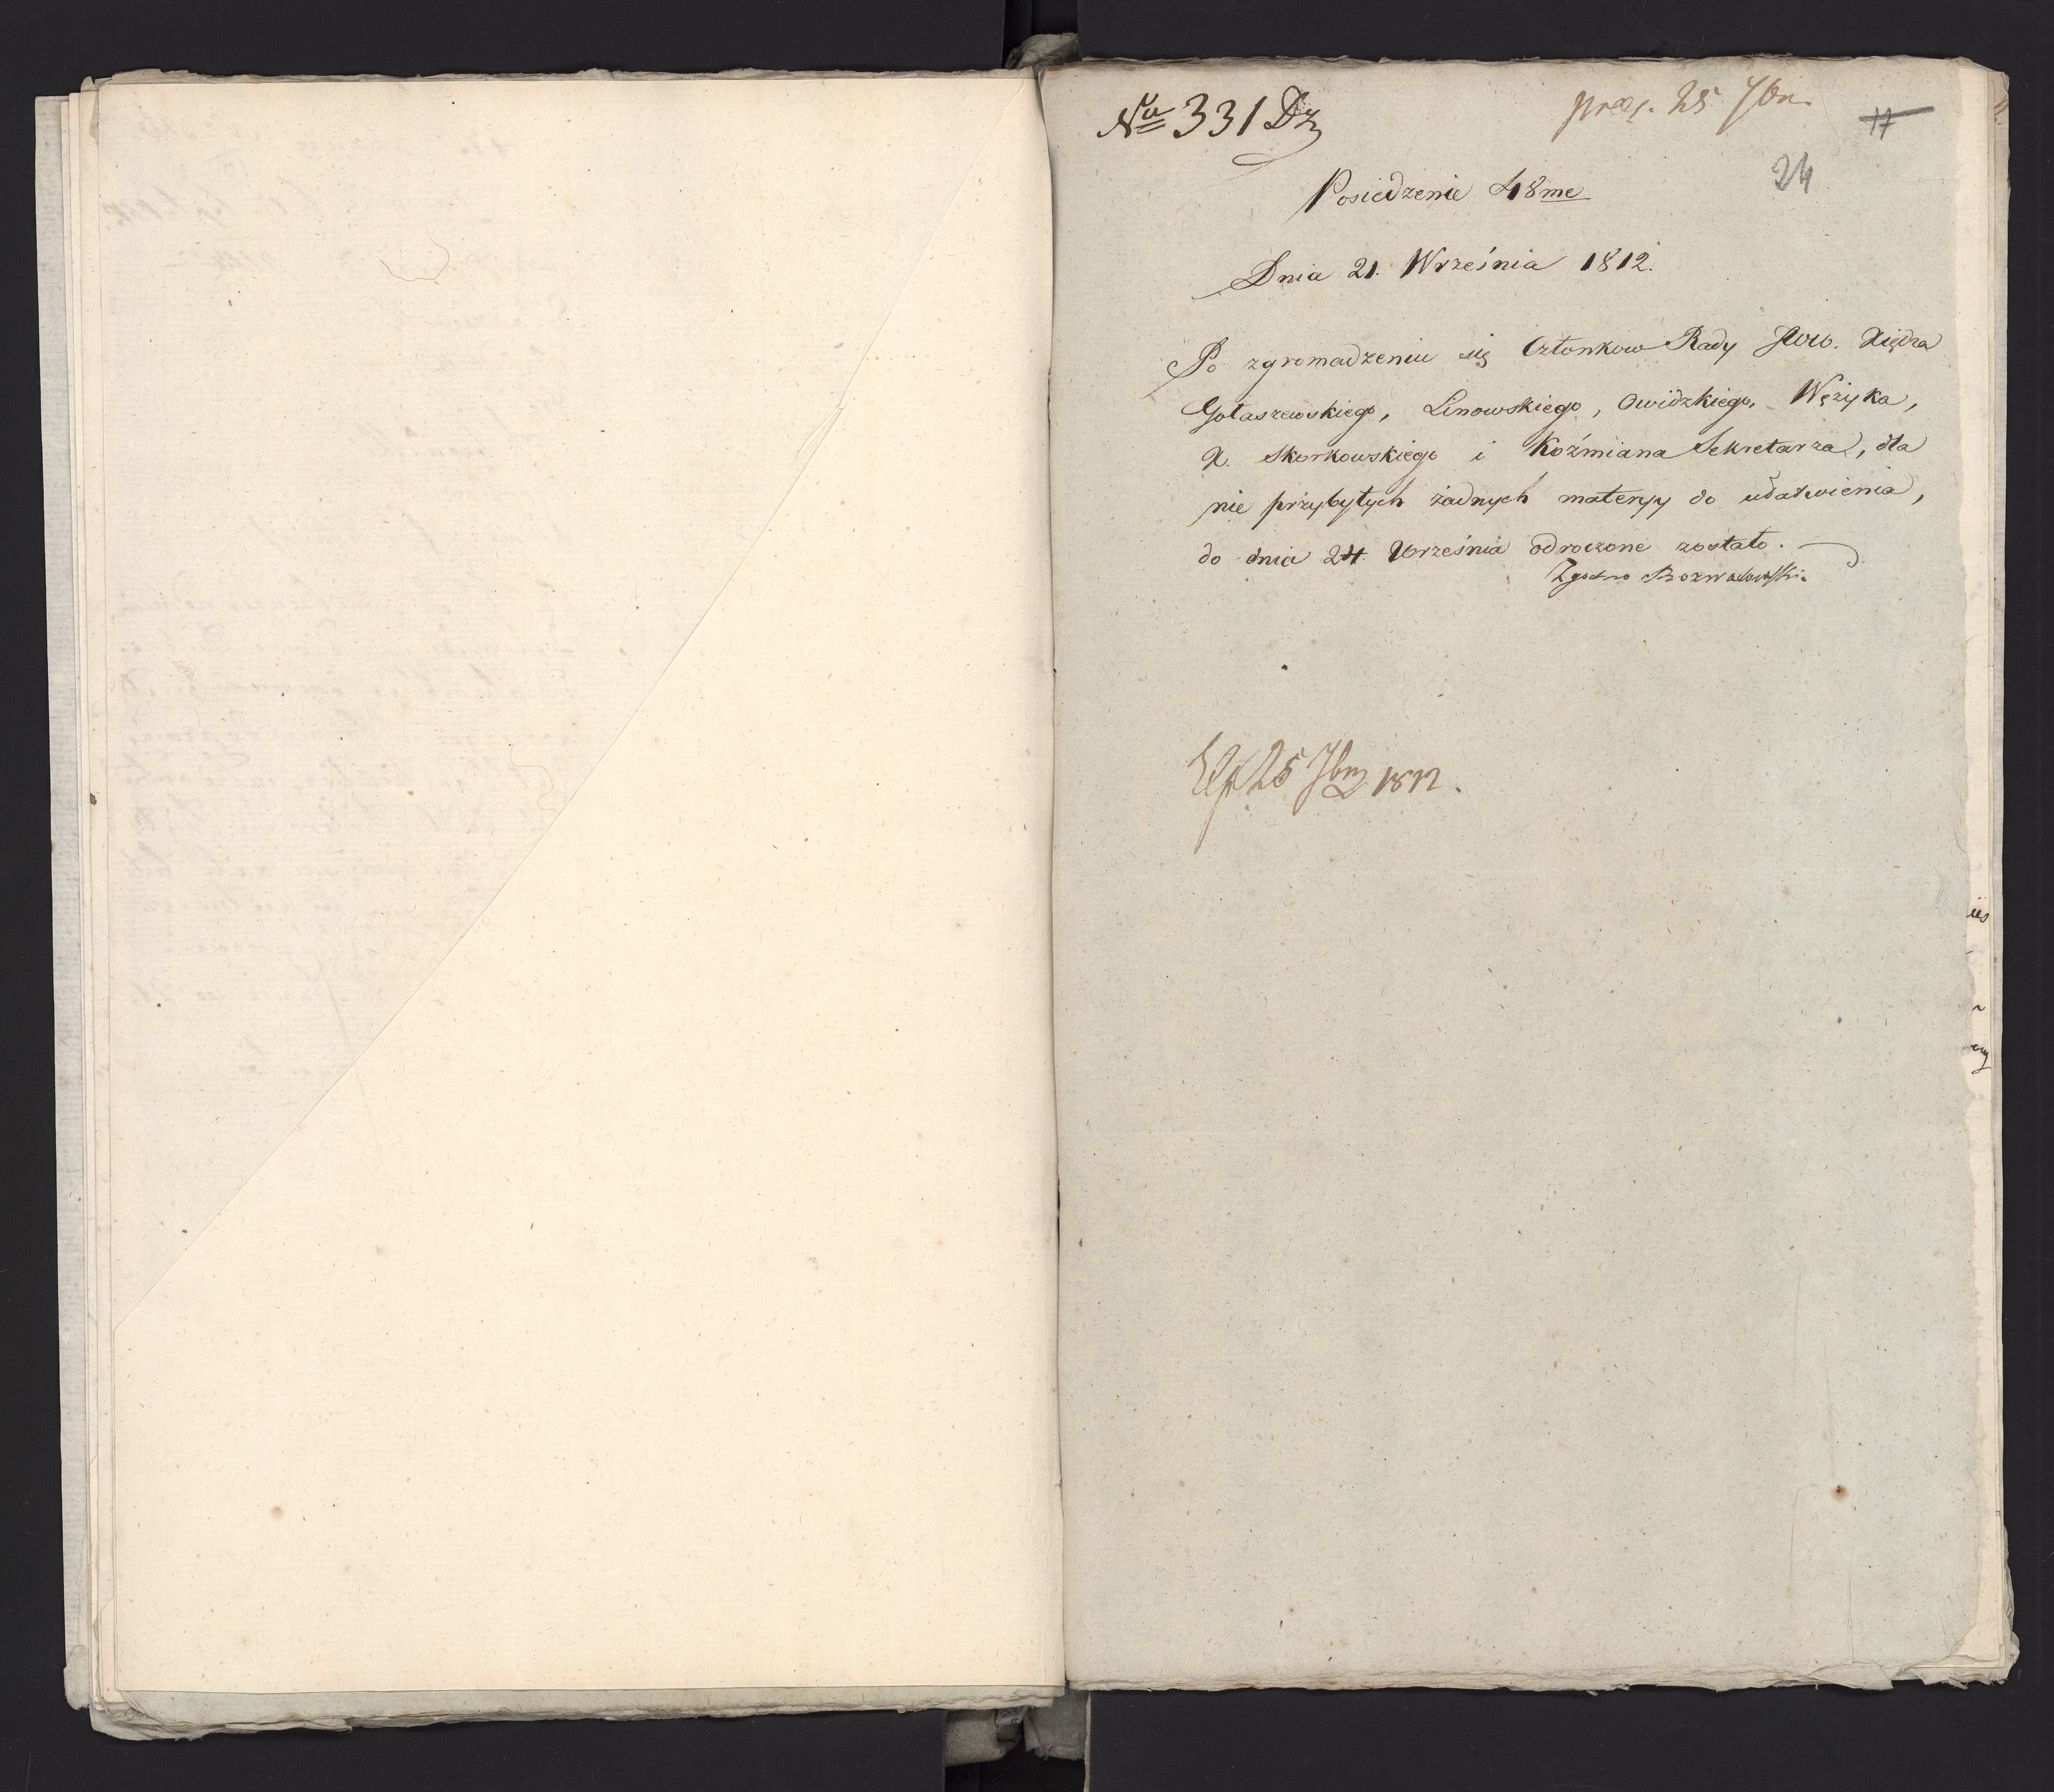 No 331 Dz
præs. 25 7br
17
24
Posiedzenie 48me
Dnia 21. Września 1812.
Po zgromadzeniu się Członkow Rady JWW. Xiędza
Gołaszewskiego, Linowskiego, Owidzkiego, Wężyka,
X. Skorkowskiego i Koźmiana Sekretarza, dla
nie przybyłych żadnych materyy do udatwienia,
do dnia 24. Września odroczone zostało.
Zgodno Rozwadowski
25 7br 1812.